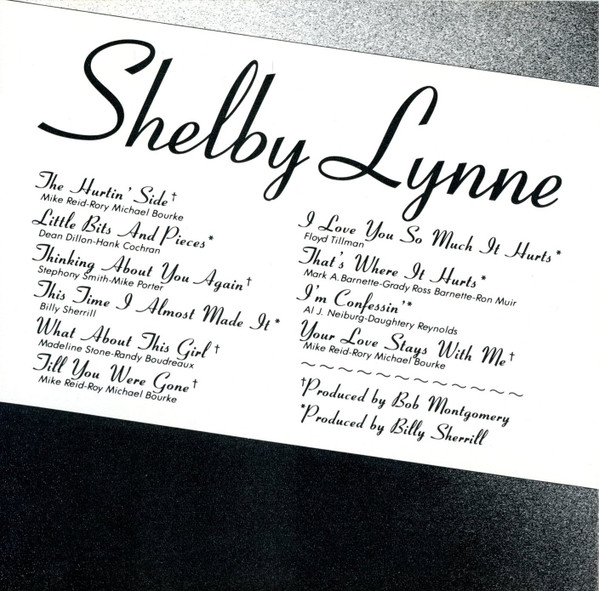 Shelby Lynne
The Hurtin' Side†
Mike Reid-Rory Michael Bourke
Little Bits And Pieces*
Dean Dillon-Hank Cochran
Thinking About You Again†
Stephony Smith-Mike Porter
This Time I Almost Made It*
Billy Sherrill
What About This Girl†
Madeline Stone-Randy Boudreaux
Till You Were Gone†
Mike Reid-Roy Michael Bourke
I Love You So Much It Hurts*
Floyd Tillman
That's Where It Hurts*
Mark A. Barnette-Grady Ross Barnette-Ron Muir
I'm Confessin'*
Al J. Neiburg-Daughtery Reynolds
Your Love Stays With Me†
Mike Reid-Rory Michael Bourke
†Produced by Bob Montgomery
*Produced by Billy Sherrill